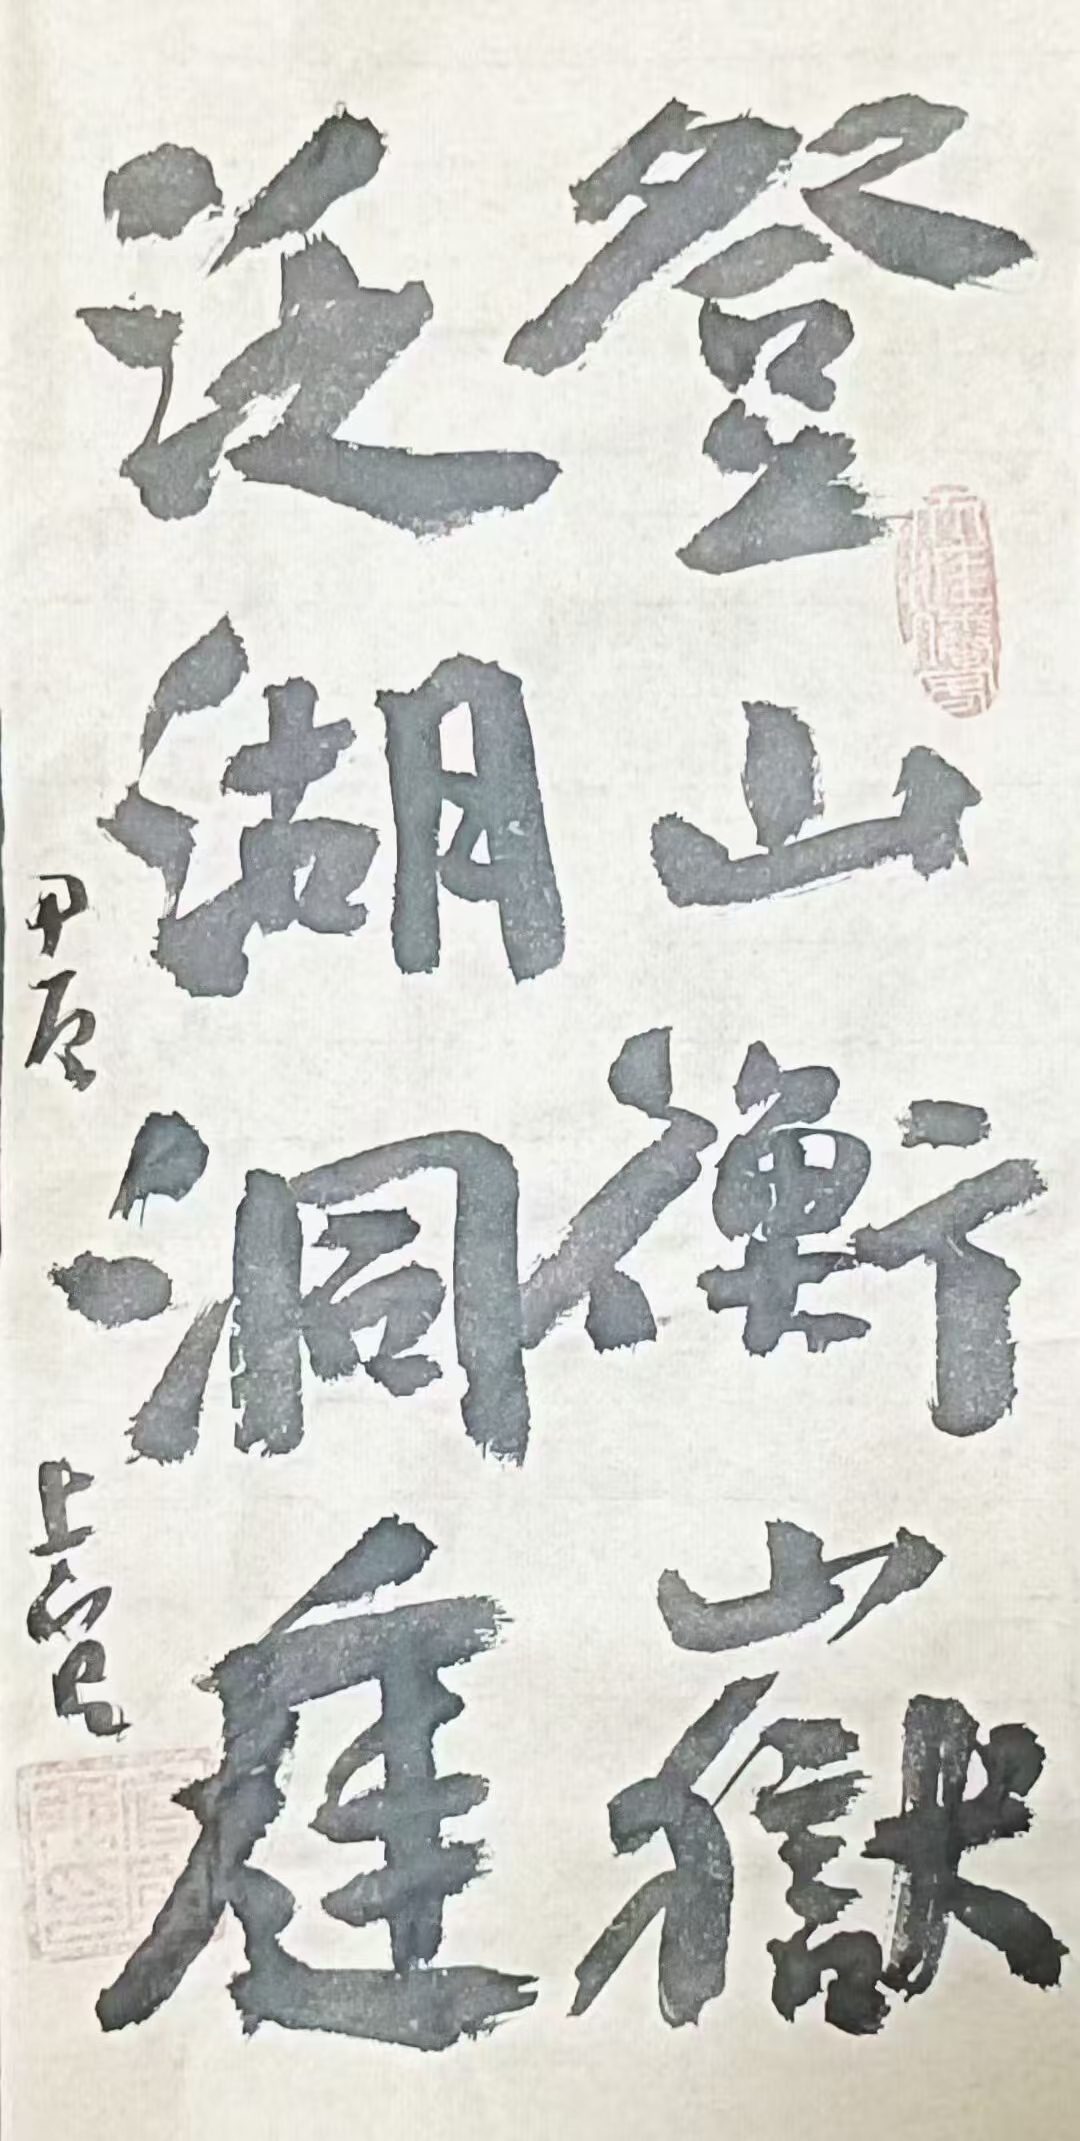 登山衡山嶽
泛湖洞庭
甲辰